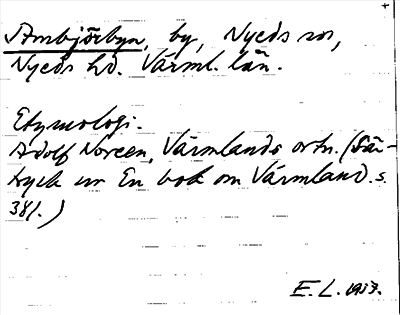 Ambjörbyn, by, Nyeds sn,
Nyeds hd. Värml. län.
Etymologi.
Adolf Noreen, Värmlands ortn. (Sär-
tryck ur En bok om Värmland. s.
381.)
E. L. 1933.